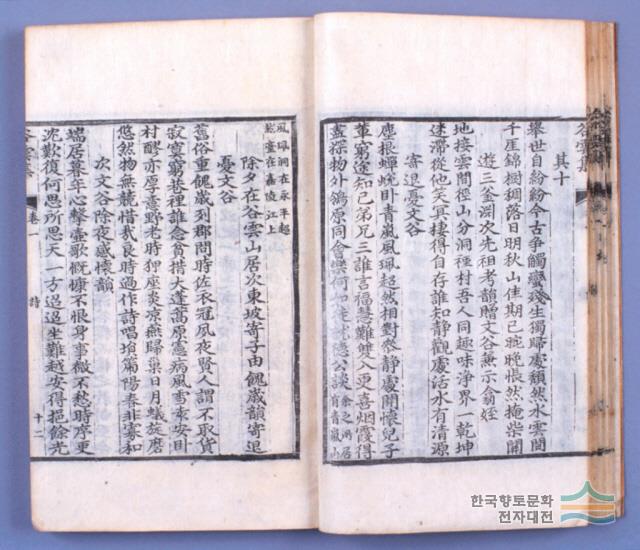 其十
擧世自紛紛今古爭觸蠻殘生獨歸處頹然水雲間
千厓錦樹稠落日明秋山佳期已晼晩悵然掩柴關
遊三釜淵次先祖考韻贈文谷兼示翁姪
地接雲間徑山分洞裡村吾人同趣味淨界一乾坤
遲滯從他笑冥棲得自存誰知靜觀處活水有淸源
寄退憂文谷
塵根蟬蛻卧靑嵐風珮超然相對參靜處開懷兒子
輩窮途知己弟兄三誰言福慧難雙入更喜烟霞得
盡探物外鴒原同會樂何如
公談
余之所居
有靑嵐山
風珮洞在永平起
嘉陵江上
除夕在谷雲山居次東坡寄子由餽歲韻寄退
憂文谷
舊俗重餽歲列郡問時佐衣冠夙夜賢人謂不取貨
寂寞窮巷裡誰念貧措大蓬蒿原憲病風雪袁安卧
村醪亦厚意野老時狎座炎凉燕歸巢日月蟻旋磨
悠然物無競惜我良時過作詩唱塤篪陽春非寡和
次文谷除夜感懷韻
端居暮年心擊壺歌慨慷不恨身事微不愁時序更
沈歎復何思所思天一方迢迢坐難越安得挹餘光
谷雲集
卷一
詩
十二
谷雲集
한국향토문화
전자대전